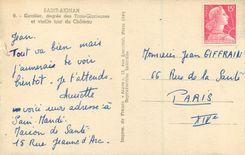 SAINT-AIGNAN
9. - Escalier, degrés des Trois-Glorieuses
et vieille tour du Château
Jean.
Tout va bien mais
j'aimerais te voir
bientôt. Je t'attends.
Annette
voici mon adresse à
Saint Mandé
Maison de Santé
15 Rue Jeanne d'Arc.
15F
Monsieur Jean GIFFRAIN
66 Rue de la Santé
PARIS
XIVe